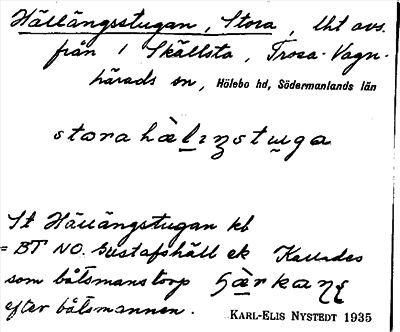 Hällängsstugan, Stora, lht avs.
från 1 Skällsta, Trosa-Vagn-
härads sn, Hölebo hd, Södermanlands län
stora hàlıŋstuga
St Hällängstugan kb
= BT NO. Gustafshäll ek Kallades
som båtsmanstorp
efter båtsmannen. KARL-ELIS NYSTEDT 1935